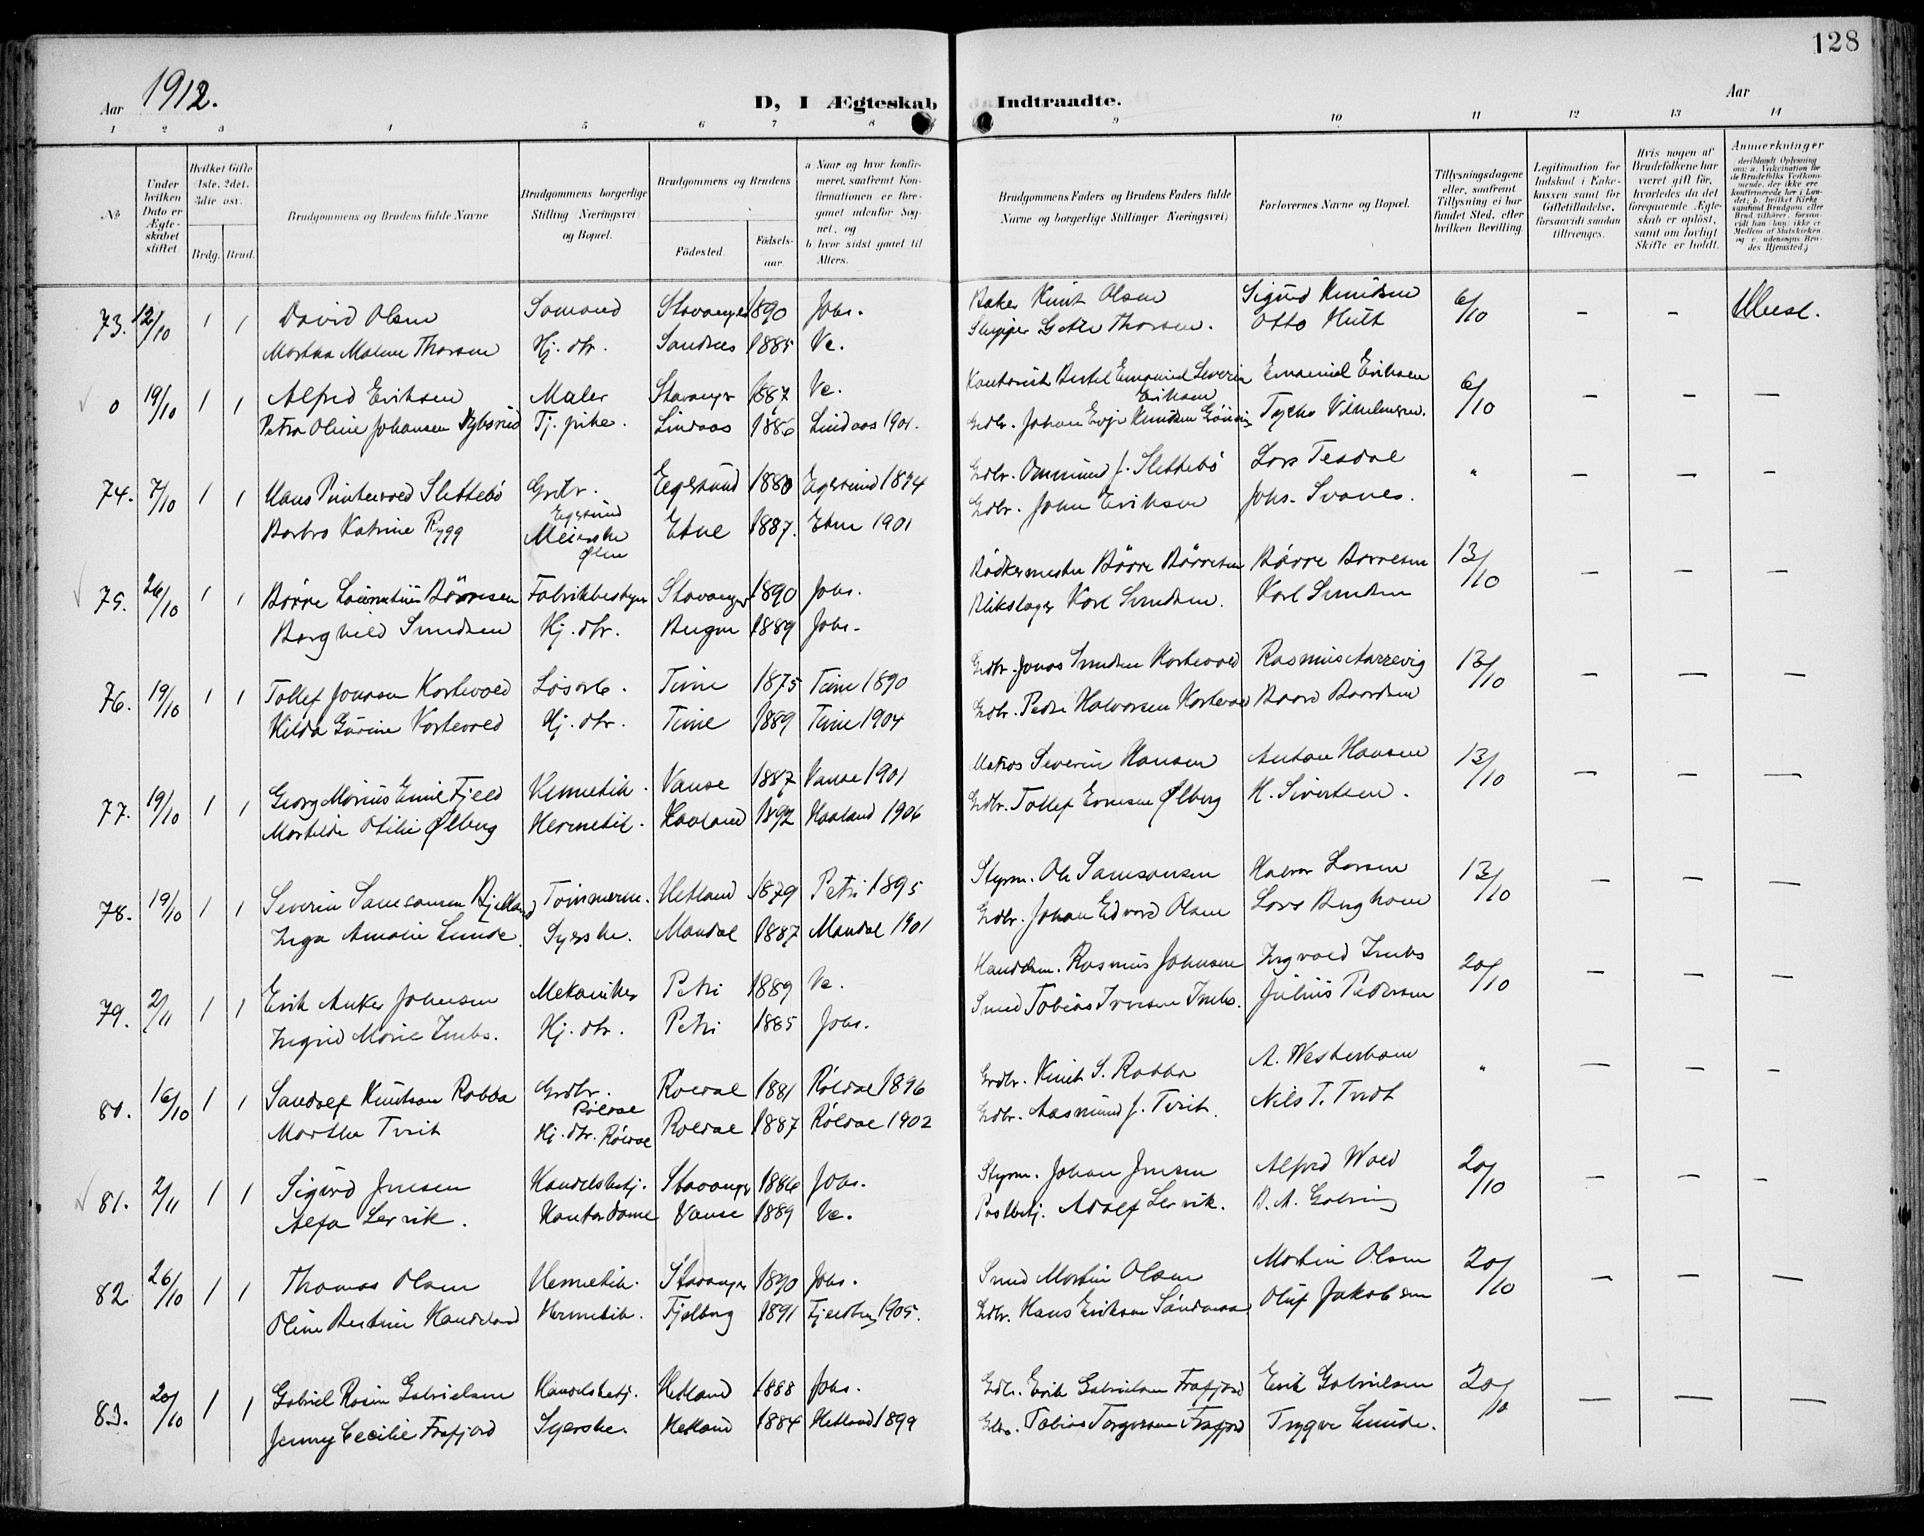 128
Aar 1912.
D, I Ægteskab Indtraadte.
Aar
1 2 3 4 5 6 7 8 9 10 11 12 13 14
No
Under hvilken Dato er Ægteskabet stiftet
Hvilket Gifte 1ste. 2det. 3die osv.
Brdg. Brud.
Brudgommens og Brudens fulde Navne
Brudgommens borgerlige Stilling (Næringsvei) og Bopæl.
Brudgommens og Brudens
Fødested.
Fødselsaar.
a Naar og hvor konfirmeret, saafremt Konfirmationen er foregaaet udenfor Sognet, og
b. hvor sidst gaaet til Alters.
Brudgommens Faders og Brudens Faders fulde Navne og borgerlige Stillinger (Næringsvei)
Forlovernes Navne og Bopæl.
Tillysningsdagene eller, saafremt Tillysning ei har fundet Sted, efter hvilken Bevilling.
Legitimation for Indskud i Enkekassen samt for Giftetilladelse, forsaavidt saadan tiltrænges.
Hvis nogen af Brudefolkene har været gift før, hvorledes da det foregaaende Ægteskab er opløst, samt om lovligt Skifte er holdt.
Anmerkninger
73. 12/10 1 1 David Olsen Sømand Stavanger 1890 Johs. Baker Knut Olsen Sigurd Knudsen 6/10 - -
Martha Malene Thorsen Hj. dtr. Sandnes 1885 Ve. Skipper Thorsen. Otto Hult
0 19/10 1 1 Alfred Eriksen Maler Stavanger 1887 Ve. Kontorist Bertel Emanuel Severin Eriksen Emanuel Eriksen 6/10 - -
Petra Oline Johansen Tj. pike. Lindaas 1886 Lindaas 1901. Gdbr. Johan Knudsen Tycho Vilhelmsen.
74. 7/10 1 1 Hans Slettebö Grdbr. Egersund Egersund 1880 Egersund 1894 Gdbr. Ommund J. Slettebö Lars Tesdal " - -
Barbro Katrine Rygg Meierske Ølen Etne 1887. Etne 1901 Gdbr. John Eriksen Johs. Svanes.
75. 26/10 1 1 Börre Börresen Fabrikbestyrer Stavanger 1890 Johs. Bödkermester Börre Börresen Börre Börresen 13/10 - -
Borghild Svendsen Hj. dtr. Bergen 1889 Johs. Blikslager Karl Svendsen. Karl Svendsen
76. 19/10 1 1 Tollef Jonasen Kortevold Time 1875 Time 1890 Gdbr. Jonas Kortevold Rasmus 13/10 - - -
Hilda Gurine Kortevold Hj. dtr. Time 1889 Time 1904 Gdbr. Peder Halvorsen Kortevold Baard Baardsen
77. 19/10 1 1 Georg Marius Fjeld Hermetik. Vanse 1887 Vanse 1901 Matros Severin Hansen Anton Hansen 13/10 - - -
Mathilde Otilie Ølberg Hermetik. Haaland 1892 Haaland 1906 Gdbr. Tollef Ølberg H. Sivertsen.
78. 19/10 1 1 Severin Samsonsen Bjelland Tömmerm. Hetland 1879 Petri 1895 Styrm. Ole Samsonsen Halvor Larsen 13/10 - - -
Inga Amalie Lunde. Syerske. Mandal 1887 Mandal 1901 Gdbr. Johan Edvard Olsen Lars
79. 2/11 1 1 Erik Anker Johnsen Mekaniker Petri 1889 Ve. Handelsm. Rasmus Johnsen Ingvald Imbs 20/10 - - -
Ingrid Marie Imbs. Hj. dtr. Petri 1885 Johs. Smed Tobias Iversen Imbs. Julius Pedersen
80. 16/10 1 1 Sandolf Knutson Rabba Grdbr. Röldal Röldal 1881 Röldal 1896 Grdbr. Knut S. Rabba A. Westerheim " - - -
Marthe Tveit Hj. dtr. Röldal Röldal 1887 Röldal 1902 Gdbr. Aasmund J. Tveit. Nils T. Tvedt
81. 2/11 1 1 Sigurd Jensen Handelsbetj. Stavanger 1886 Johs. Styrm. Johan Jensen Alfred Wold 20/10 - - -
Alfa Lervik. Kontordame Vanse 1889 Ve. Postbetj. Adolf Lervik.
82 26/10 1 1 Thomas Olsen Hermetik. Stavanger 1890 Johs. Smed Martin Olsen Martin Olsen 20/10 - - -
Oline Bertine Handeland Hermetik. Fjelberg 1891 Fjeldberg 1905. Gdbr. Hans Eriksen Oluf Jakobsen
83. 20/10 1 1 Gabriel Rasin Gabrielsen Handelsbetj. Hetland 1888 Johs. Gdbr. Erik Gabrielsen Frafjord Erik Gabrielsen 20/10 - - -
Jenny Cecilie Frafjord Syerske. Hetland 1884 Hetland 1899 Gdbr. Tobias Torgersen Frafjord Trygve Lunde.